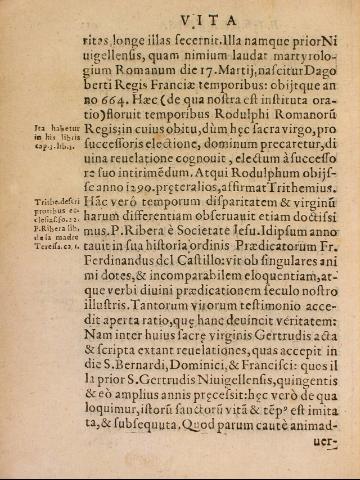 VITA
ritas, longe illas secernit. Illa namque prior Ni
uigellensis, quam nimium laudat martyrolo-
gium Romanum die 17. Martij, nascitur Dago
berti Regis Franciæ temporibus: obijtque an
no 664. Hæc (de qua nostra est instituta ora-
tio) floruit temporibus Rodulphi Romanorũ
Regis; in cuius obitu, dùm hęc sacra virgo, pro
successoris electione, dominum precaretur, di
uina reuelatione cognouit, electum à successo
re suo intirimẽdum. Atqui Rodulphum obijs-
se anno 1290. pręter alios, affirmat Trithemius.
Hãc verò temporum disparitatem & virginũ
harum differentiam obseruauit etiam doctissi
mus. P. Ribera è Societate Iesu. Idipsum anno
tauit in sua historia ordinis Prædicatorum Fr.
Ferdinandus del Castillo: vir ob singulares ani
mi dotes, & incomparabilem eloquentiam, at-
que verbi diuini prædicationem seculo nostro
illustris. Tantorum virorum testimonio acce-
dit aperta ratio, quę hanc deuincit veritatem:
Nam inter huius sacrę virginis Gertrudis acta
& scripta extant reuelationes, quas accepit in
die S. Bernardi, Dominici, & Francisci: quos il
la prior S. Gertrudis Niuigellensis, quingentis
& eò amplius annis pręcessit: hęc verò de qua
loquimur, istorũ sanctorũ vitã & tẽpꝰ est imita
ta, & subsequuta. Quod parum cautè animad-
uer-
Ita habetur
in his libris
cap. 3. lib. 3.
Trithe. de scri
ptoribus ec
clesias. fo. 22.
P. Ribera lib.
de sa madre
Teresa. ca. 1.